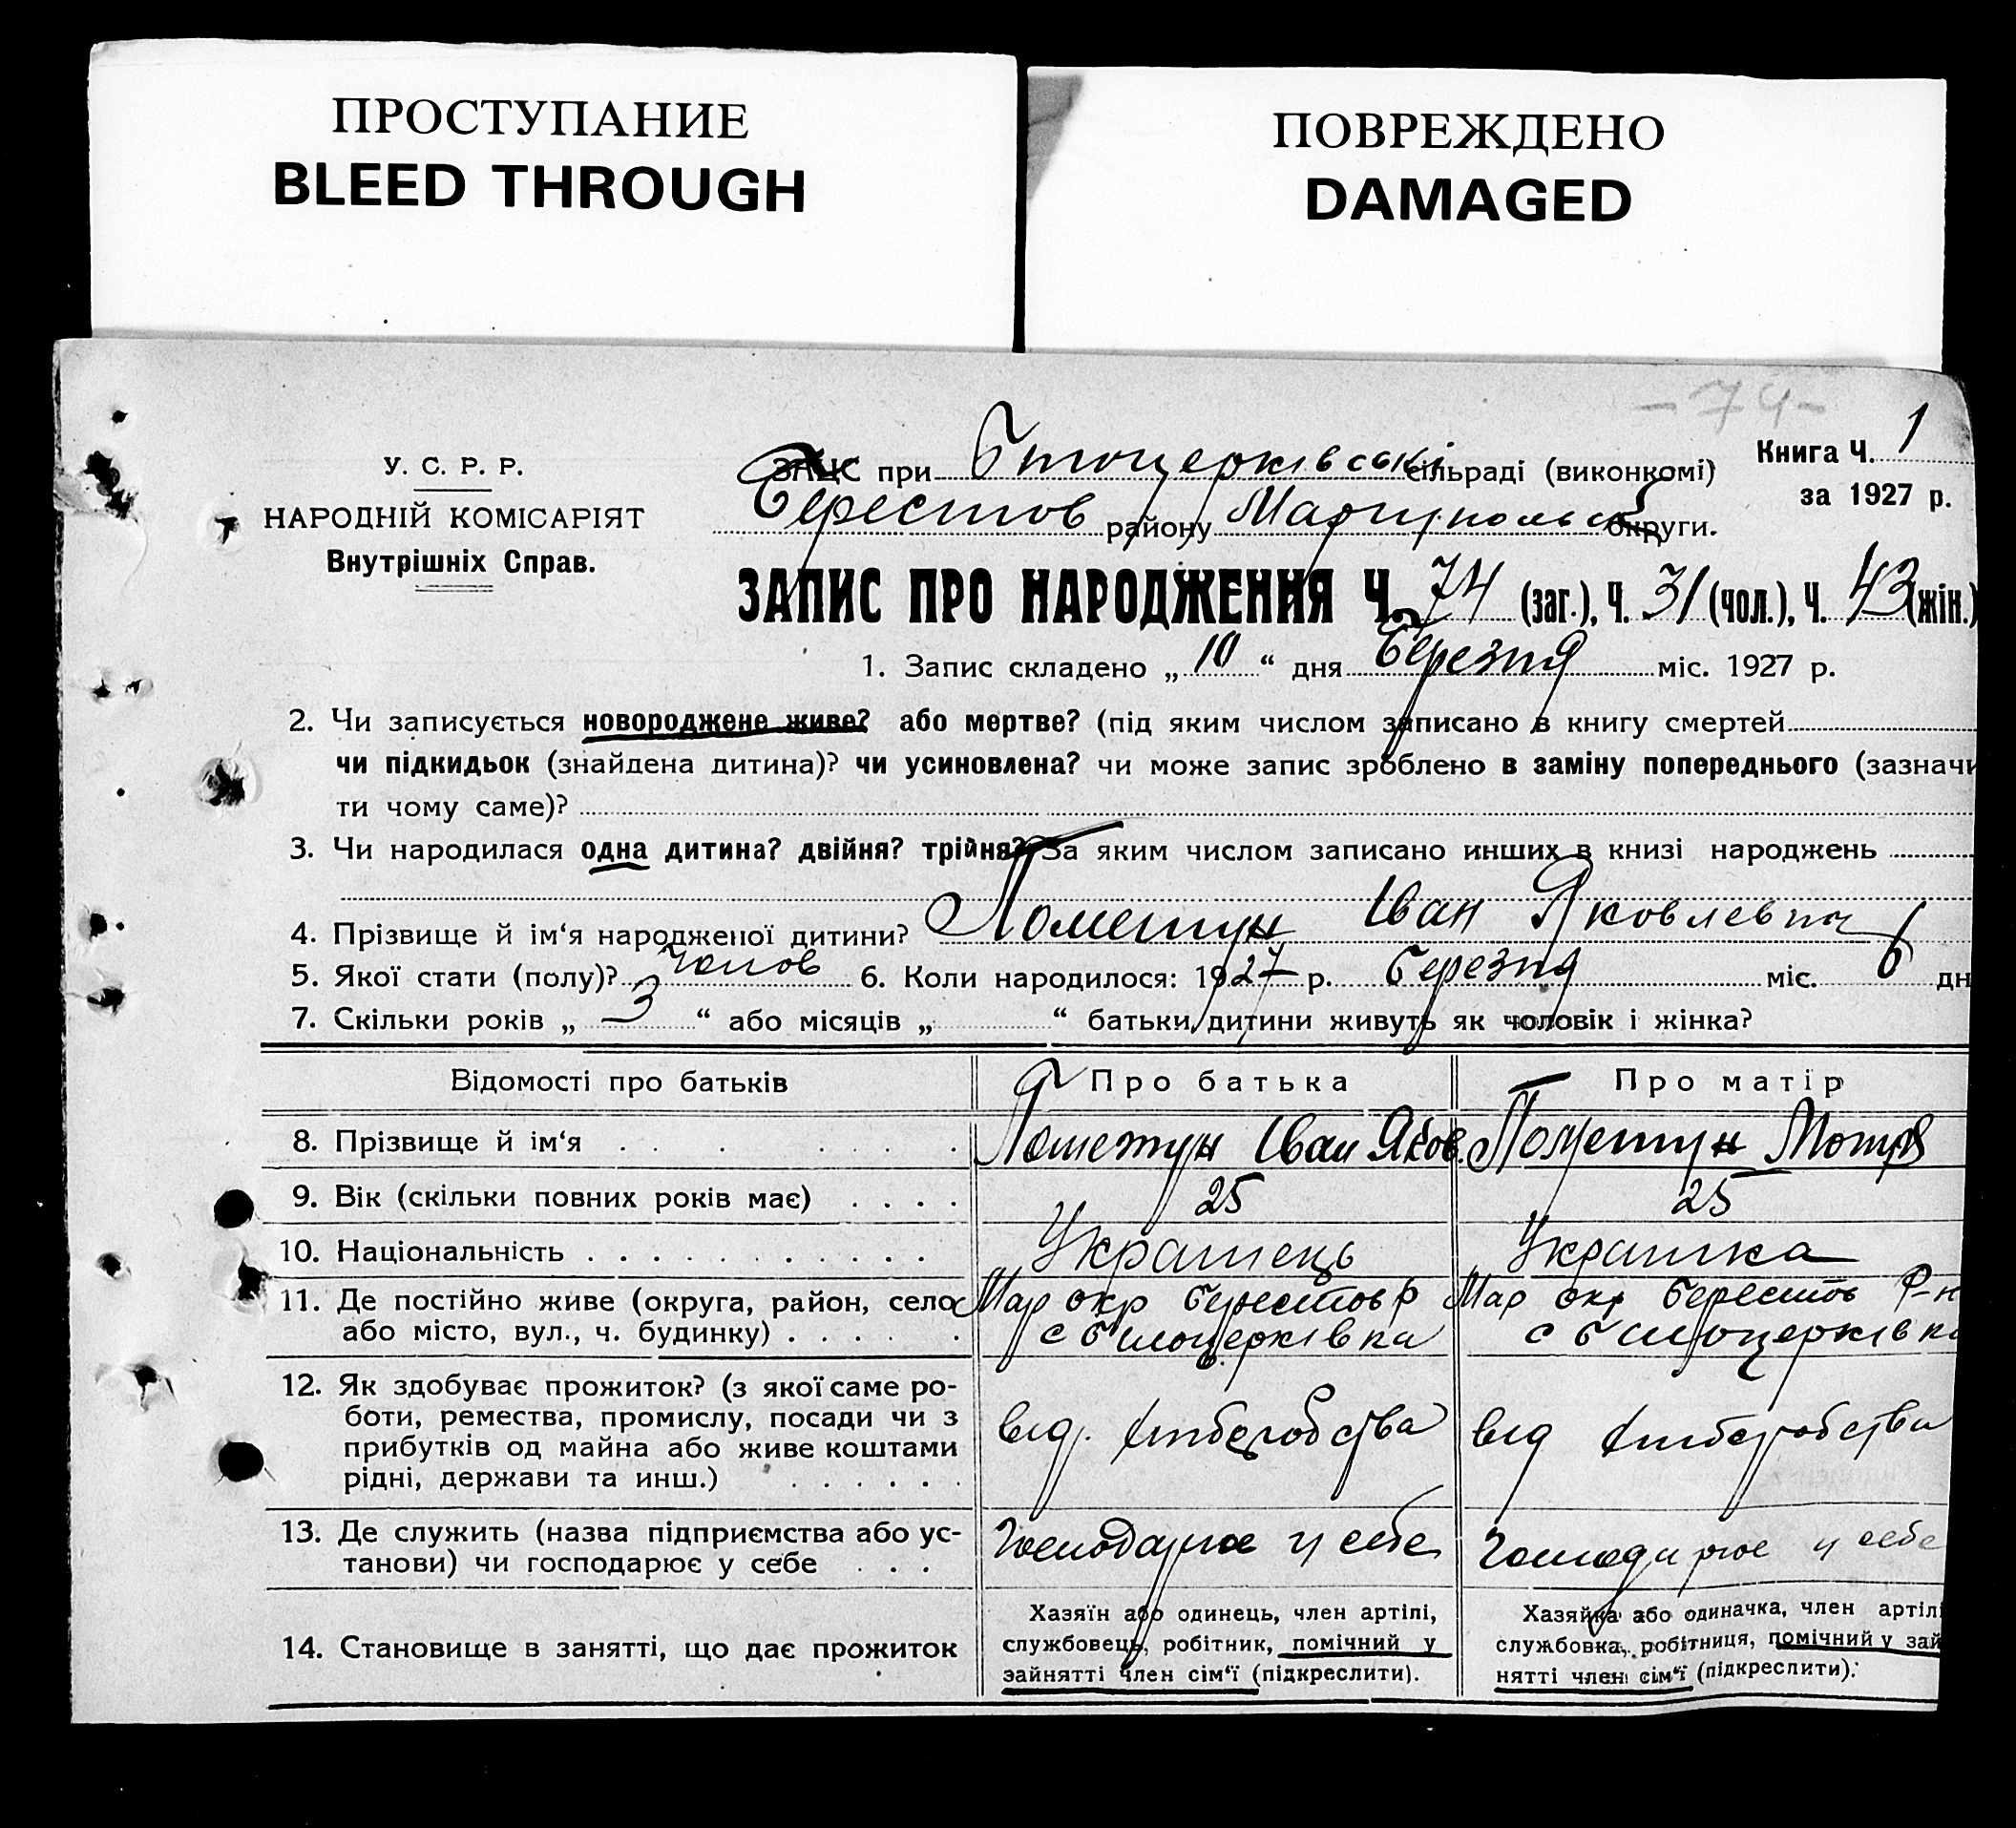 ПРОСТУПАНИЕ
BLEED THROUGH
ПОВРЕЖДЕНО
DAMAGED
-74-
У. С. Р. Р.
НАРОДНІЙ КОМІСАРІЯТ
Внутрішніх Справ.
ЗАЦС при Білоцерківській сільраді (виконкомі)
Берестов району Маріупольськ округи.
Книга Ч. 1
за 1927 р.
ЗАПИС ПРО НАРОДЖЕННЯ Ч. 74 (заг.), Ч. 31 (чол.), Ч. 43 (жін.)
1. Запис складено „ 10 “ дня Березня міс. 1927 р.
2. Чи записується новороджене живе? або мертве? (під яким числом записано в книгу смертей
чи підкидьок (знайдена дитина)? чи усиновлена? чи може запис зроблено в заміну попереднього (зазначи
ти чому саме)?
3. Чи народилася одна дитина? двійня? трійня? За яким числом записано инших в книзі народжень
4. Прізвище й ім‘я народженої дитини? Пометун Іван Яковлевич
5. Якої стати (полу)? чолов 6. Коли народилося: 1927 р. березня міс. 6 дн
7. Скільки років „ 3 “ або місяців „ “ батьки дитини живуть як чоловік і жінка?
Відомості про батьків Про батька Про матір
8. Прізвище й ім‘я Пометун Іван Яков. Пометун Мотря
9. Вік (скільки повних років має) 25 25
10. Національність Українець Українка
11. Де постійно живе (округа, район, село Мар окр Берестов р Мар окр Берестов Р-н
або місто, вул., ч. будинку) с Білоцерківка с Білоцерківка
12. Як здобуває прожиток? (з якої саме ро-
боти, ремества, промислу, посади чи з від. хліборобства від хліборобства
прибутків од майна або живе коштами
рідні, держави та инш.)
13. Де служить (назва підприємства або ус- Господарює у себе Господарює у себе
танови) чи господарює у себе
14. Становище в занятті, що дає прожиток
Хазяїн або одинець, член артілі,
службовець, робітник, помічний у
зайнятті член сім‘ї (підкреслити).
Хазяйка або одиначка, член артіл
службовка, робітниця, помічний у зай
нятті член сім‘ї (підкреслити).